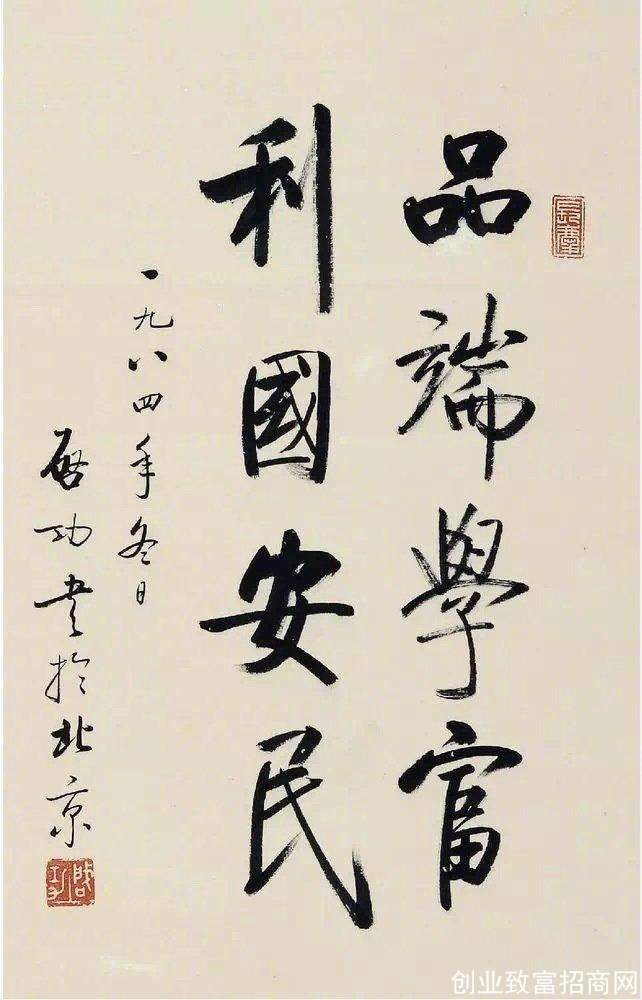 品端學富
利國安民
一九八四年冬日
啟功書於北京
啟功
创业致富招商网